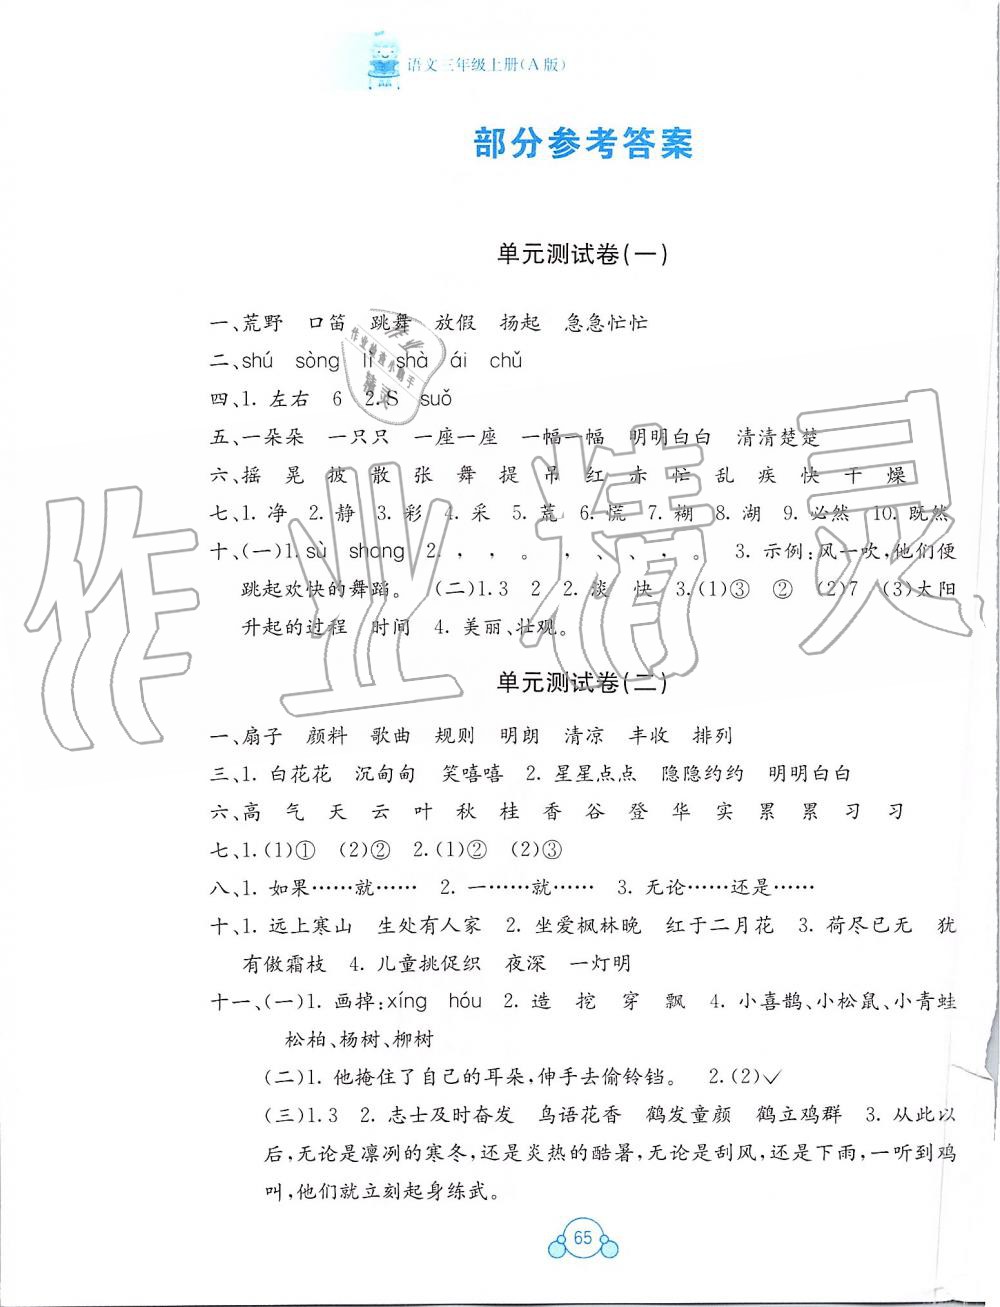 语文三年级上册(A版)
部分参考答案
单元测试卷(一)
一、荒野 口笛 跳舞 放假 扬起 急急忙忙
二、shú sòng lí shà ái chǔ
四、1. 左右 6 2. S suǒ
五、一朵朵 一只只 一座一座 一幅一幅 明明白白 清清楚楚
六、摇 晃 披 散 张 舞 提 吊 红 赤 忙 乱 疾 快 干 燥
七、1. 净 2. 静 3. 彩 4. 采 5. 荒 6. 慌 7. 糊 8. 湖 9. 必然 10. 既然
十、(一)1. sù shang 2. , , 。 , 、 、 , 。 3. 示例:风一吹,他们便
跳起欢快的舞蹈。 (二)1.3 2 2. 淡 快 3.(1)③ ② (2)7 (3)太阳
升起的过程 时间 4. 美丽、壮观。
单元测试卷(二)
一、扇子 颜料 歌曲 规则 明朗 清凉 丰收 排列
三、1. 白花花 沉甸甸 笑嘻嘻 2. 星星点点 隐隐约约 明明白白
六、高 气 天 云 叶 秋 桂 香 谷 登 华 实 累 累 习 习
七、1.(1)① (2)② 2.(1)② (2)③
八、1. 如果……就…… 2. 一……就…… 3. 无论……还是……
十、1. 远上寒山 生处有人家 2. 坐爱枫林晚 红于二月花 3. 荷尽已无 犹
有傲霜枝 4. 儿童挑促织 夜深 一灯明
十一、(一)1. 画掉:xíng hóu 2. 造 挖 穿 飘 4. 小喜鹊、小松鼠、小青蛙
松柏、杨树、柳树
(二)1. 他掩住了自己的耳朵,伸手去偷铃铛。 2.(2)✓
(三)1.3 2. 志士及时奋发 鸟语花香 鹤发童颜 鹤立鸡群 3. 从此以
后,无论是凛冽的寒冬,还是炎热的酷暑,无论是刮风,还是下雨,一听到鸡
叫,他们就立刻起身练武。
65
作业精灵
作业
作业检查小助手
精灵